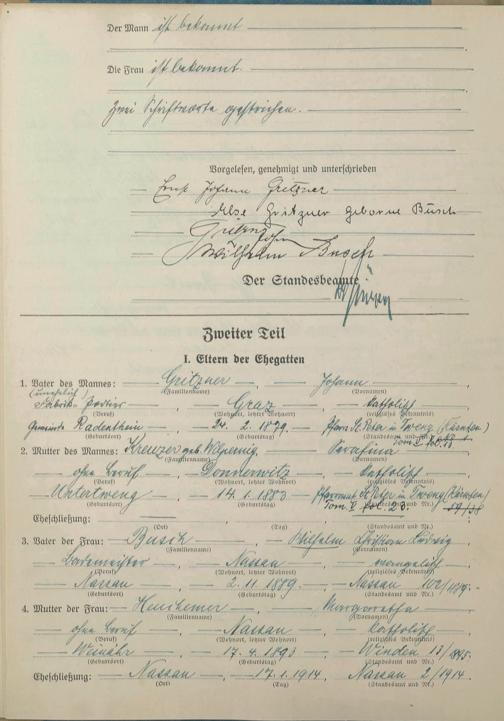 Der Mann ist bekannt
Die Frau ist bekannt.
Zwei Schriftworte gestrichen.
Vorgelesen, genehmigt und unterschrieben
Ernst Johann Gritzner
Else Gritzner geborne Busch
Gritzner Johann
Wilhelm Busch
Der Standesbeamte
Zweiter Teil
I. Eltern der Ehegatten
1. Vater des Mannes: Gritzner, Johann
(unehelich) (Familienname) (Vornamen)
Fabrik-Portier, Graz, katholisch
(Beruf) (Wohnort, letzter Wohnort) (religiöses Bekenntnis)
Gemeinde Radenthein, 24. 2. 1879. Pfarre St. Peter in Tweng (Kärnten)
(Geburtsort) (Geburtstag) (Standesamt und Nr.)
2. Mutter des Mannes: Kreuzer geb., Serafina
(Familienname) (Vornamen)
ohne Beruf, Donnerwitz, katholisch
(Beruf) (Wohnort, letzter Wohnort) (religiöses Bekenntnis)
Untertweng, 14. 1. 1883, Pfarramt St. Peter in Tweng (Kärnten)
(Geburtsort) (Geburtstag) Tom. V fol. 23
Eheschließung:
(Ort) (Tag) (Standesamt und Nr.)
3. Vater der Frau: Busch, Wilhelm Ludwig
(Familienname) (Vornamen)
Bademeister, Nassau, evangelisch
(Beruf) (Wohnort, letzter Wohnort) (religiöses Bekenntnis)
Nassau, 2. 11. 1889. Nassau
(Geburtsort) (Geburtstag) (Standesamt und Nr.)
4. Mutter der Frau:, Margaretha
(Familienname) (Vornamen)
ohne Beruf, Nassau, katholisch
(Beruf) (Wohnort, letzter Wohnort) (religiöses Bekenntnis)
Weinähr, 17. 4. 1893, Winden
(Geburtsort) (Geburtstag) (Standesamt und Nr.)
Eheschließung: Nassau, 17. 1. 1914, Nassau 2/1914.
(Ort) (Tag) (Standesamt und Nr.)